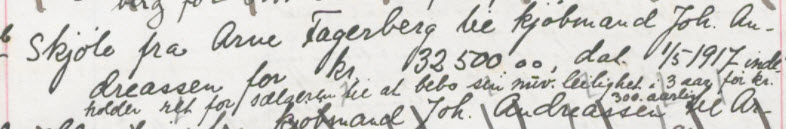 Skjøte fra Arne Fagerberg til kjøbmand Joh. An-
dreassen for kr. 32500.00, dat. 1/5 1917 inde-
holder ret for sælgeren til at bebo sin nuv. leilighet i 3 aar for kr.
300. aarlig
kjøbmand Joh. Andreassen til Ar-